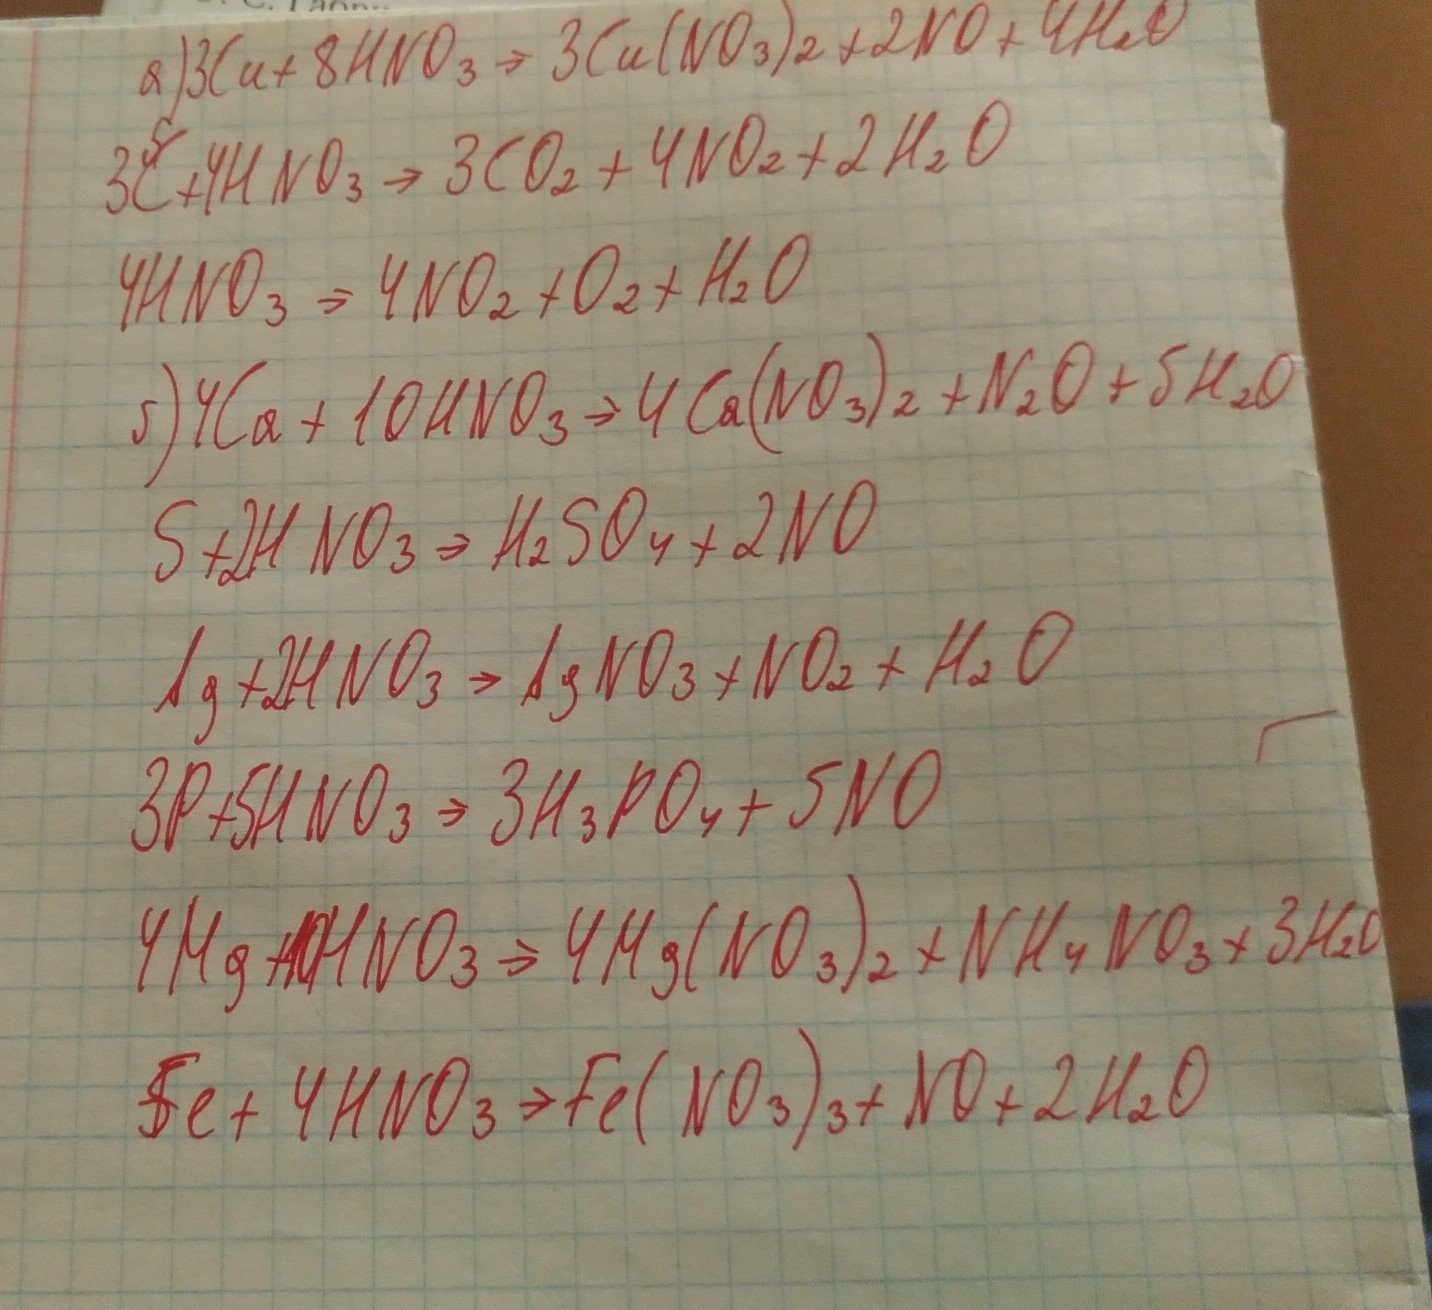 а) 3Cu + 8HNO3 → 3Cu(NO3)2 + 2NO + 4H2O
3C + 4HNO3 → 3CO2 + 4NO2 + 2H2O
4HNO3 → 4NO2 + O2 + H2O
б) 4Ca + 10HNO3 → 4Ca(NO3)2 + N2O + 5H2O
S + 2HNO3 → H2SO4 + 2NO
Ag + 2HNO3 → AgNO3 + NO2 + H2O
3P + 5HNO3 → 3H3PO4 + 5NO
4Mg + 10HNO3 → 4Mg(NO3)2 + NH4NO3 + 3H2O
Fe + 4HNO3 → Fe(NO3)3 + NO + 2H2O